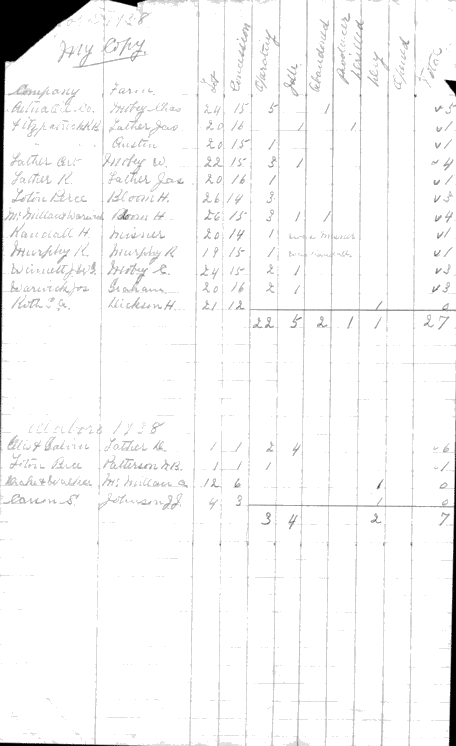 1938
My Copy
Company Farm Lot Concession Operating Idle Abandoned Producer Drilled Dry Opened Total
Moby Chas 24 15 5 1 √5
Fitzpatrick Lather Jas 20 16 1 1 √1
" " Austin 20 15 1 √1
Lather Orv Moby W. 22 15 3 1 √4
Lather K. Lather Jas 20 16 1 √1
Loton Bree Bloom H. 26 14 3 √3
McMillan & Warwick Bloom H. 26 15 3 1 1 √4
Randall H. Misner 20 14 1 √1
Murphy R. Murphy R 19 15 1 √1
Winnett Moby C. 24 15 2 1 √3
Warwick Jos Graham 20 16 2 1 √3
Dickson H. 21 12 1 0
22 5 2 1 1 27
1938
Lather 1 1 2 4 √6
Loton Bree Patterson 1 1 1 √1
Drake & Walker McMillan A 12 6 1 0
Carson S. Johnson J.J. 4 3 1 0
3 4 2 7